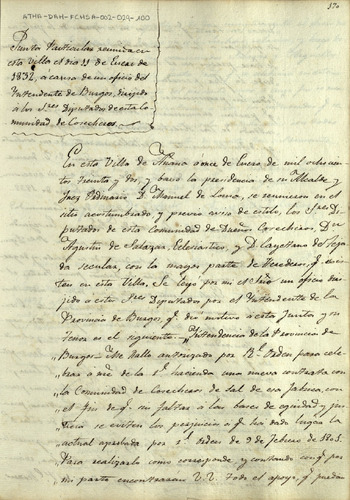 ATHA-DAH-FCMSA-002-029-100
170
Junta Particular reunida en
esta Villa el dia 11 de Enero de
1832, a causa de un oficio del
Intendente de Burgos, dirigido
à los Sres Diputados de esta Co
munidad, de Cosecheros.
En esta Villa de Añana a once de Enero, de mil ochocien
tos treinta y dos, y bajo la presidencia de su Alcalde y
Juez Pedaneo D. Manuel de, se reunieron en el
sitio acostumbrado y previo aviso de estilo, los Sres Di
putados de esta Comunidad de Dueños Cosecheros, Dn
Agustin de Salazar, Eclesiastico, y D. Cayetano de
secular, con la mayor parte de Herederos, q. exis
ten en esta Villa. Se leyo por mi el Srio un oficio diri
jido a estos Sres Diputados por el Yntendente de la
Provincia de Burgos, q. dio motivo a esta Junta y su
tenor es el siguiente. "Yntendencia de la Provincia de
"Burgos = Me hallo autorizado por Rl Orden para cele
"brar á nre de la Rl hacienda una nueva contrata con
"la Comunidad de Cosecheros de sal de esa, con
"el fin de q. su faltas á las bases de equidad y jus
"ticia se eviten los perjuicios a q. ha dado lugar la
"actual aprobada por Rl orden de 9 de Febrero de
"Para realizarla como corresponde, y contando conq. por
"mi parte encontraran V.V. todo el apoyo, q. puedan